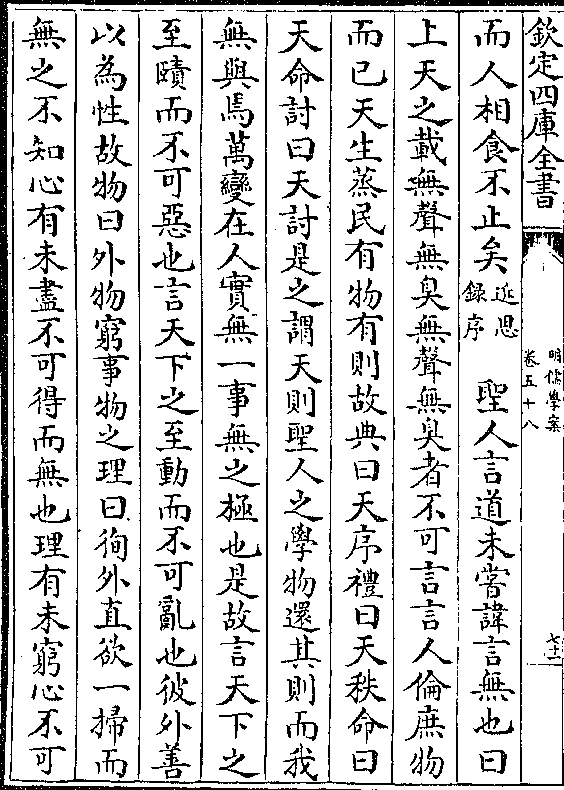 欽定四庫全書
明儒學案
卷五十八
七十一
而人相食不止矣近思錄序　聖人言道未嘗諱言無也曰
上天之載無聲無臭無聲無臭者不可言言人倫庶物
而已天生蒸民有物有則故典曰天序禮曰天秩命曰
天命討曰天討是之謂天則聖人之學物還其則而我
無與焉萬變在人實無一事無之極也是故言天下之
至賾而不可惡也言天下之至動而不可亂也彼外善
以為性故物曰外物窮事物之理曰徇外直欲一掃而
無之不知心有未盡不可得而無也理有未窮心不可